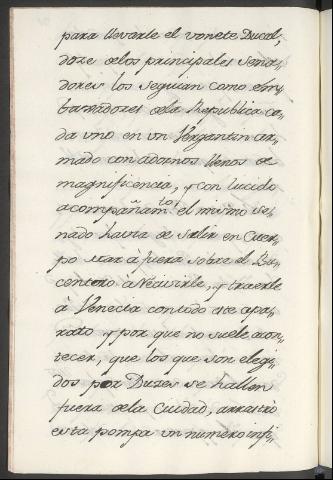 para llevarle el vonete Ducal,
doze delos principales sena-
dores los seguian como Em-
baxadores dela Republica ca-
da vno en vn Vergantin ar-
mado con adornos llenos de
magnificencia, y con lucido
acompañam.to el mismo se-
nado havia de salir en Cuer-
po mar à fuera sobre el Bu-
centoro à Recivirle, y traerle
à Venecia con todo este apa-
rato, y por que no suele acon-
tecer, que los que son elegi-
dos por Duxes se hallen
fuera dela Ciudad, arrastrò
esta pompa vn numero infi-